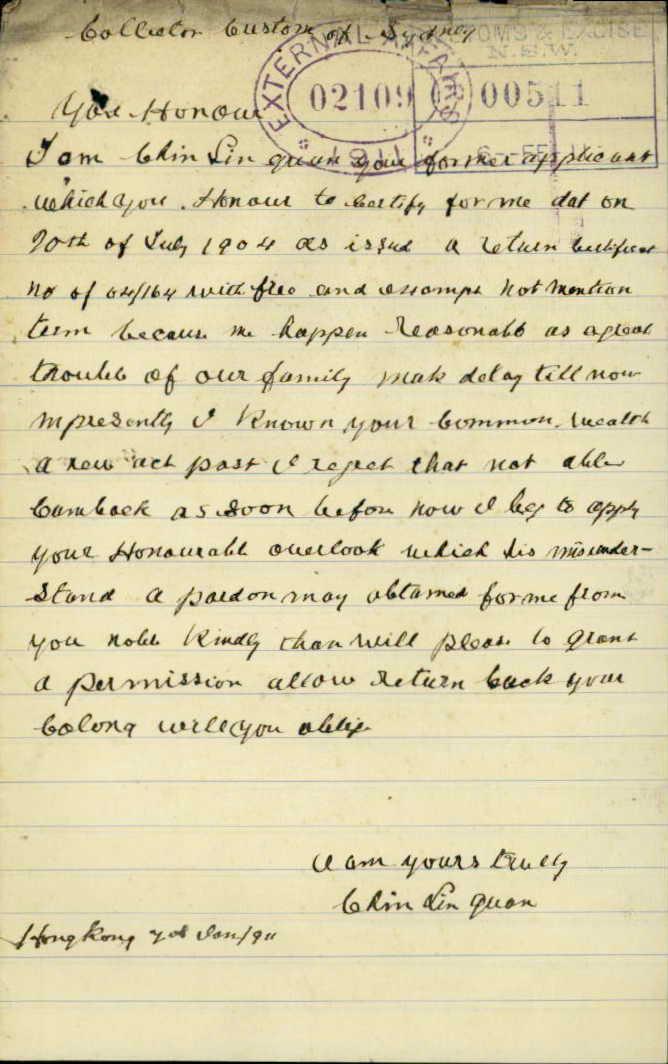 Collector Custom of Sydney
EXTERNAL AFFAIRS
02109
1911
CUSTOMS & EXCISE
N.S.W.
00511
6-FEB.11
You Honour
I am Chin Lin quan your former applicant
which you Honour to certify for me dat on
20th of July 1904 as issud a return Certificat
no of 04/164 with free and exsamps not mention
term because me happen reasonabb as a great
trouble of our family mak delay till now
mpresently I known your Common wealth
a new act past I regret that not able
Camback as soon before now I beg to apply
your Honourabl overlook which his misunder-
stand a pardon may obtained for me from
you noble Kindly than will please to grant
a permission allow return back your
Colony will you oblige
I am yours truely
Chin Lin quan
Hong Kong Jan/911